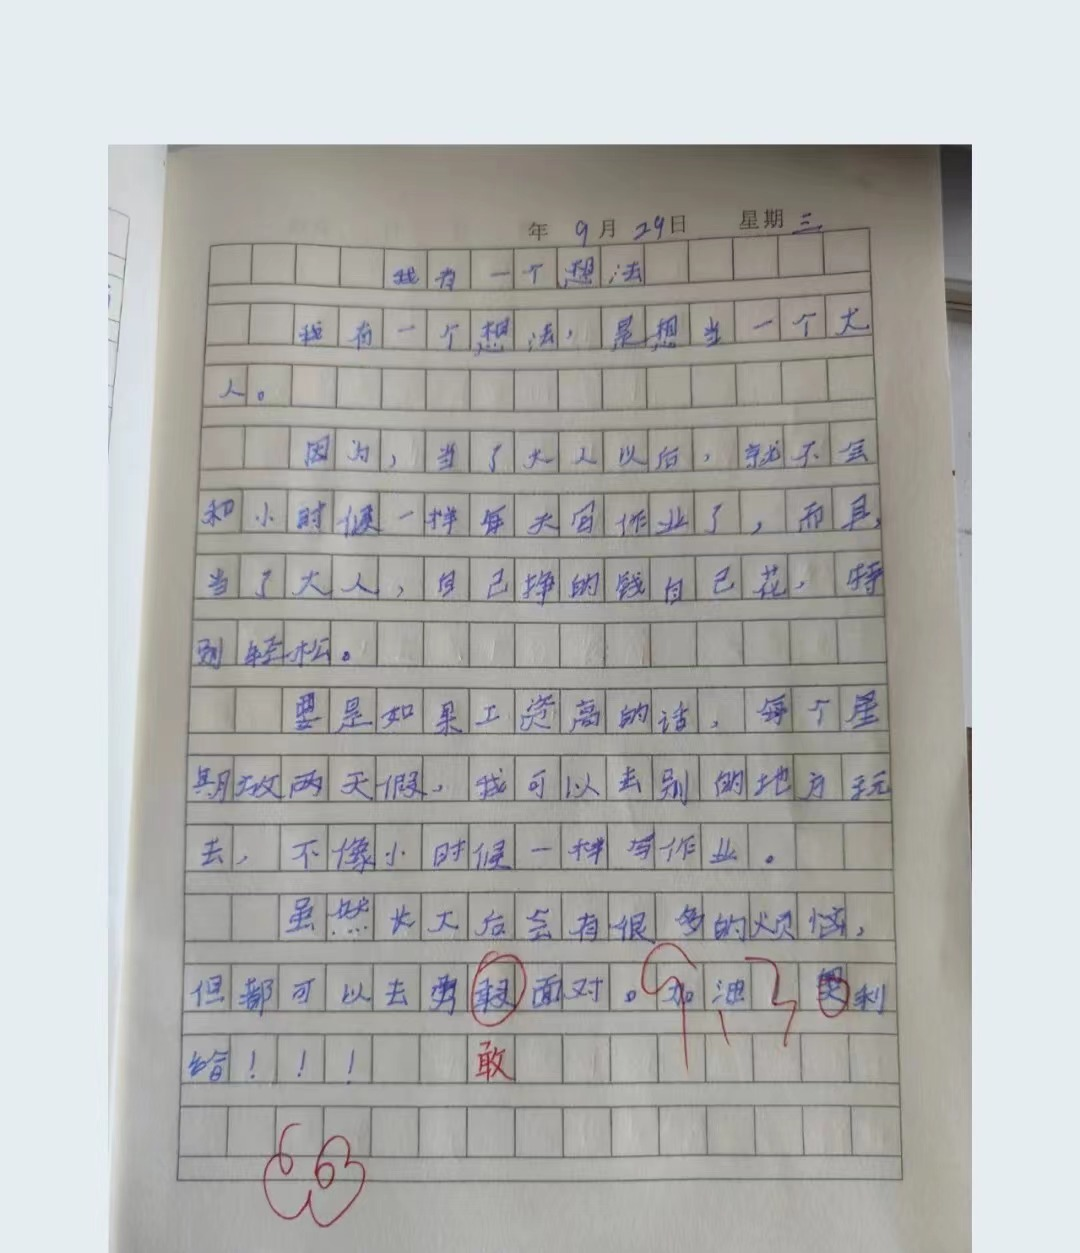 年 9月 29日 星期三
我有一个想法
我有一个想法,是想当一个大
人。
因为,当了大人以后,就不会
和小时候一样每天写作业了,而且,
当了大人,自己挣的钱自己花,特
别轻松。
要是如果工资高的话,每个星
期放两天假,我可以去别的地方玩
去,不像小时候一样写作业。
虽然长大后会有很多的烦恼,
但都可以去勇敢面对。加油 奥利
给!!!
敢